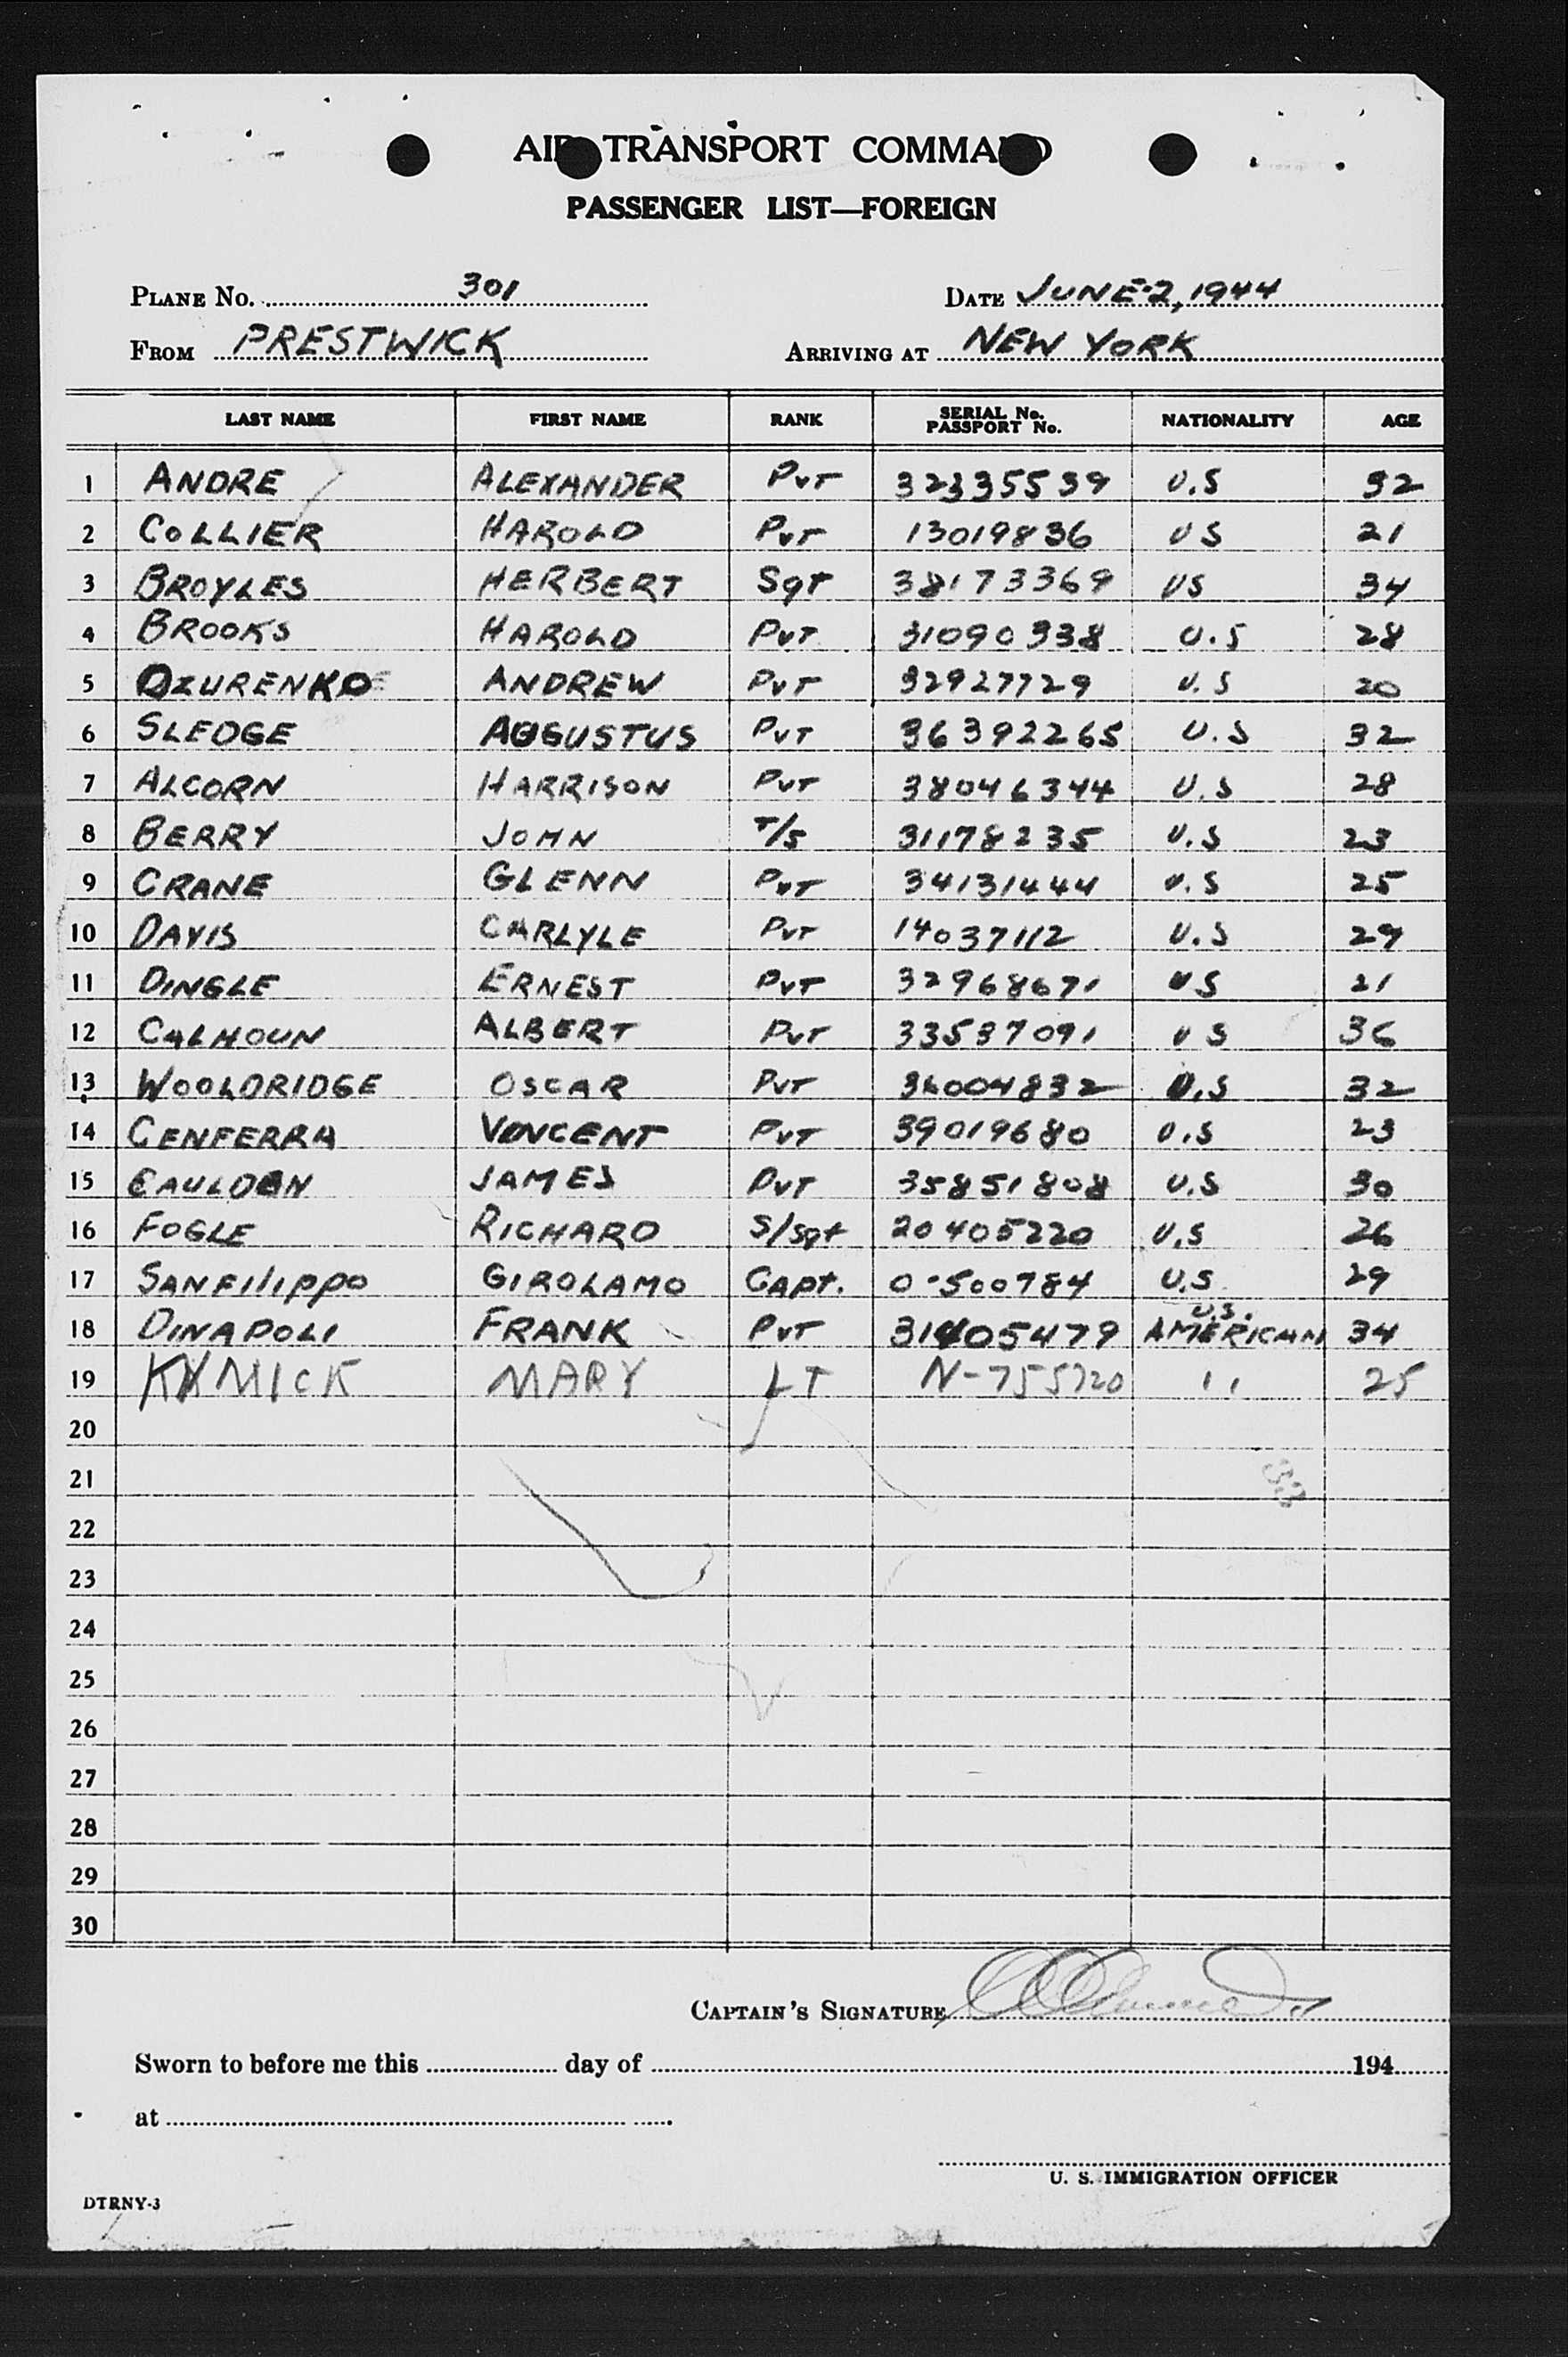 AIR TRANSPORT COMMAND
PASSENGER LIST—FOREIGN
PLANE No. 301 DATE JUNE-2, 1944
FROM PRESTWICK ARRIVING AT NEW YORK
LAST NAME FIRST NAME RANK SERIAL No. PASSPORT No. NATIONALITY AGE
1 ANDRE ALEXANDER PVT 32335539 U.S 32
2 COLLIER HAROLD PVT 13019836 US 21
3 BROYLES HERBERT Sgt 38173369 US 34
4 BROOKS HAROLD PVT 31090338 U.S 28
5 OZURENKO ANDREW PVT 32927729 U.S 20
6 SLEDGE AUGUSTUS PVT 36392265 U.S 32
7 ALCORN HARRISON PVT 38046344 U.S 28
8 BERRY JOHN T/5 31178235 U.S 23
9 CRANE GLENN PVT 34131444 U.S 25
10 DAVIS CARLYLE PVT 14037112 U.S 29
11 DINGLE ERNEST PVT 32968671 US 21
12 CALHOUN ALBERT PVT 33537091 US 36
13 WOOLDRIDGE OSCAR PVT 36004832 U.S 32
14 CENFERRA VINCENT PVT 39019680 U.S 23
15 CAULDEN JAMES PVT 35851808 U.S 30
16 FOGLE RICHARD S/Sgt 20405220 U.S 26
17 SANFILIPPO GIROLAMO Capt. O-500784 U.S. 29
18 DINAPOLI FRANK PVT 31405479 U.S. AMERICAN 34
19 KYMICK MARY LT N-755720 " 25
20
21
33
22
23
24
25
26
27
28
29
30
CAPTAIN'S SIGNATURE
Sworn to before me this day of 194
at
U. S. IMMIGRATION OFFICER
DTRNY-3